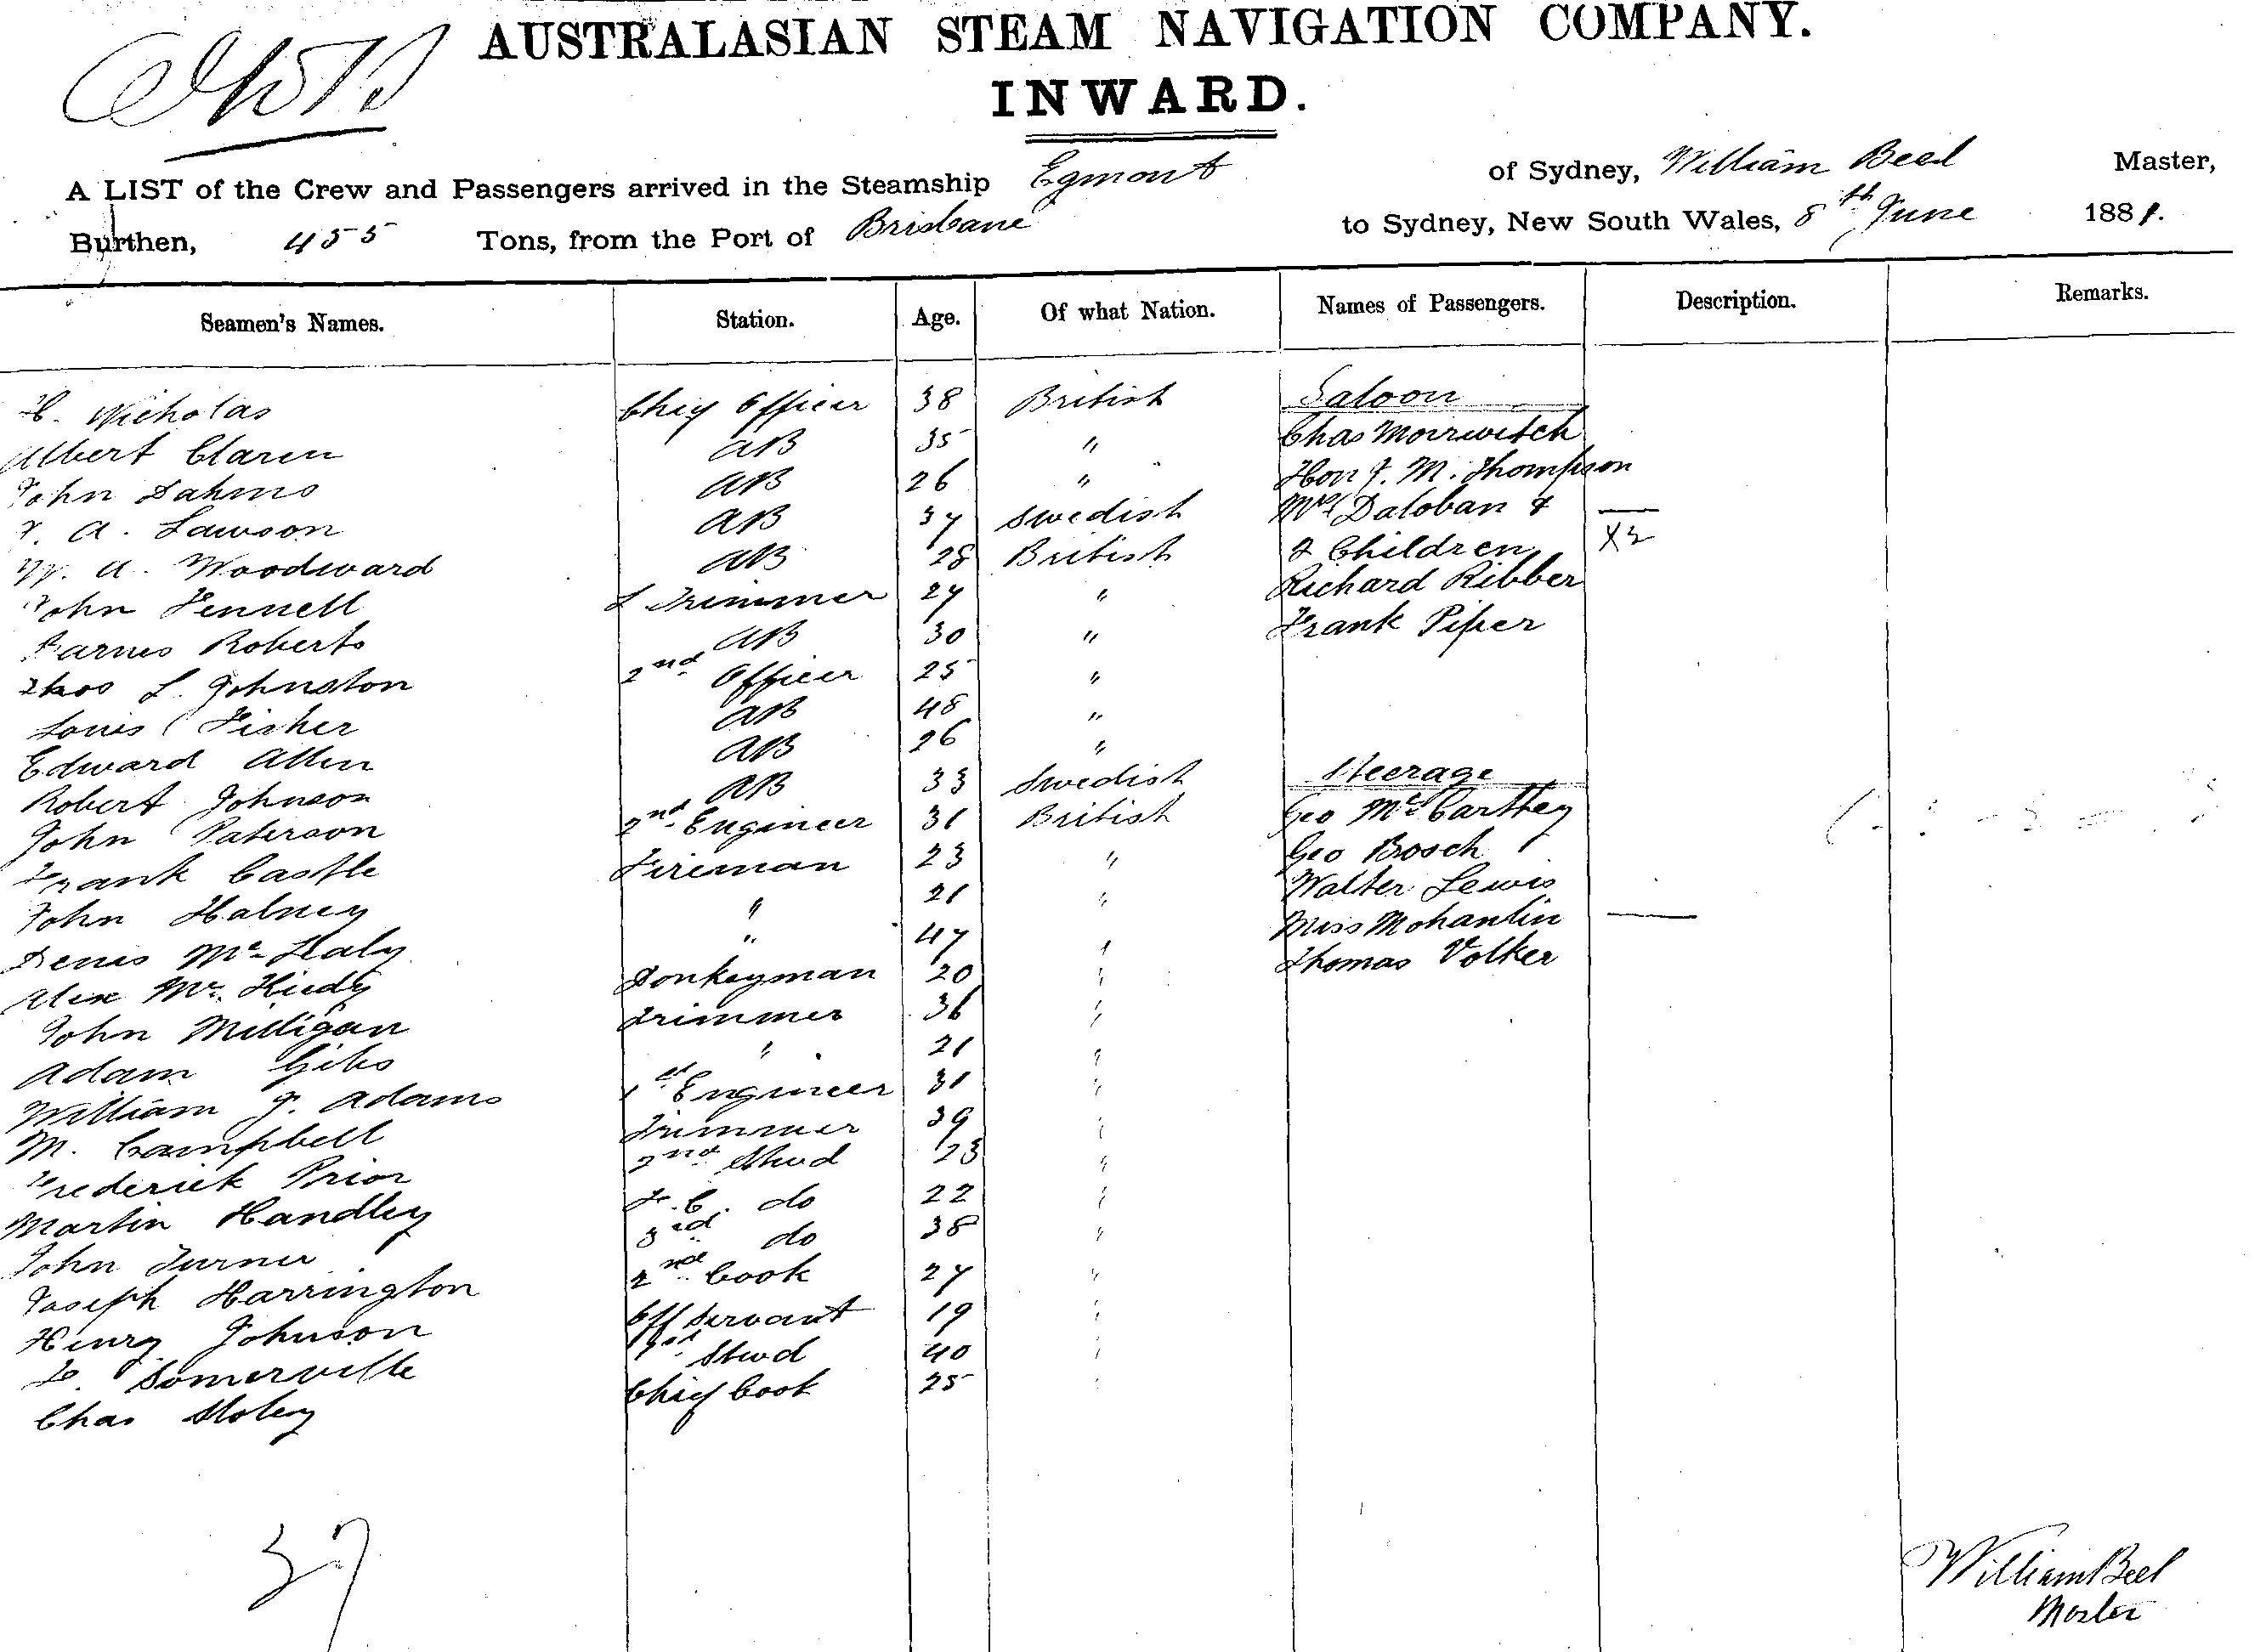 AUSTRALASIAN STEAM NAVIGATION COMPANY.
INWARD.
A LIST of the Crew and Passengers arrived in the Steamship Egmont of Sydney, William Beel Master,
Burthen, 455 Tons, from the Port of Brisbane to Sydney, New South Wales, 8th June 1881.
Seamen's Names. Station. Age. Of what Nation. Names of Passengers. Description. Remarks.
H. Nicholas Chief Officer 38 British Saloon
Albert Claren AB 35 " Chas Morrwitch
John Dahms AB 26 " Hon J. M. Thompson
F. A. Lawson AB 37 Swedish Mrs Daloban &
W. A. Woodward AB 28 British 2 Children X2
John Fennell L Trimmer 27 " Richard Ribber
Barnes Roberts AB 30 " Frank Piper
Thos L. Johnston 2nd Officer 25 "
Louis Fisher AB 48 "
Edward Allen AB 26 "
Robert Johnson AB 33 Swedish Steerage
John Paterson 2nd Engineer 31 British Geo McCarthey
Frank Castle Fireman 23 " Geo Brosch
John Halney " 21 " Walter Lewis
Denis Mc Healy " 47 " Miss Mohanlin
Alex Mc Hiedy Donkeyman 20 " Thomas Volker
John Milligan Trimmer 36 "
Adam Gibs " 21 "
William J. Adams 1st Engineer 31 "
M. Campbell Trimmer 39 "
Frederick Prior 2nd Stwd 23 "
Martin Handley F. C. do 22 "
John Turner 3rd do 38 "
Joseph Harrington 2nd Cook 27 "
Henry Johnson Off Servant 19 "
F. Somerville 1st Stwd 40 "
Chas Stoley Chief Cook 25 "
37
William Beel
Master